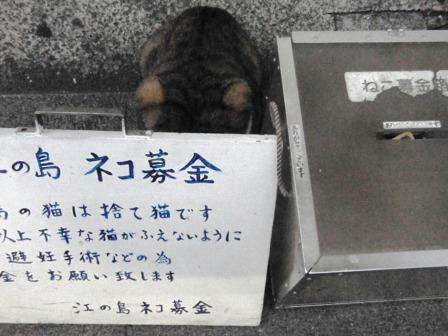 江の島 ネコ募金
の猫は捨て猫です
以上不幸な猫がふえないように
避妊手術などの為
金をお願い致します
江の島 ネコ募金
ねこ募金箱